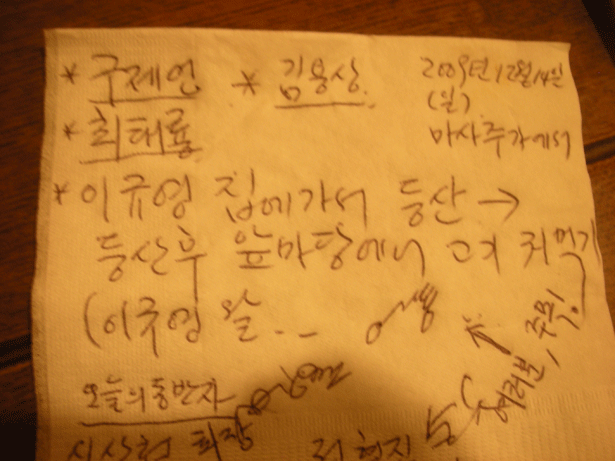 * 구제언 * 김용상
2009년 12월 14일
(월)
* 최태룡
마사주가에서
* 이규영 집에가서 등산 →
등산후 앞마당에서 고기 궈먹기
(이규영 왈..
여러분, 주목!
오늘의 동반자
회장